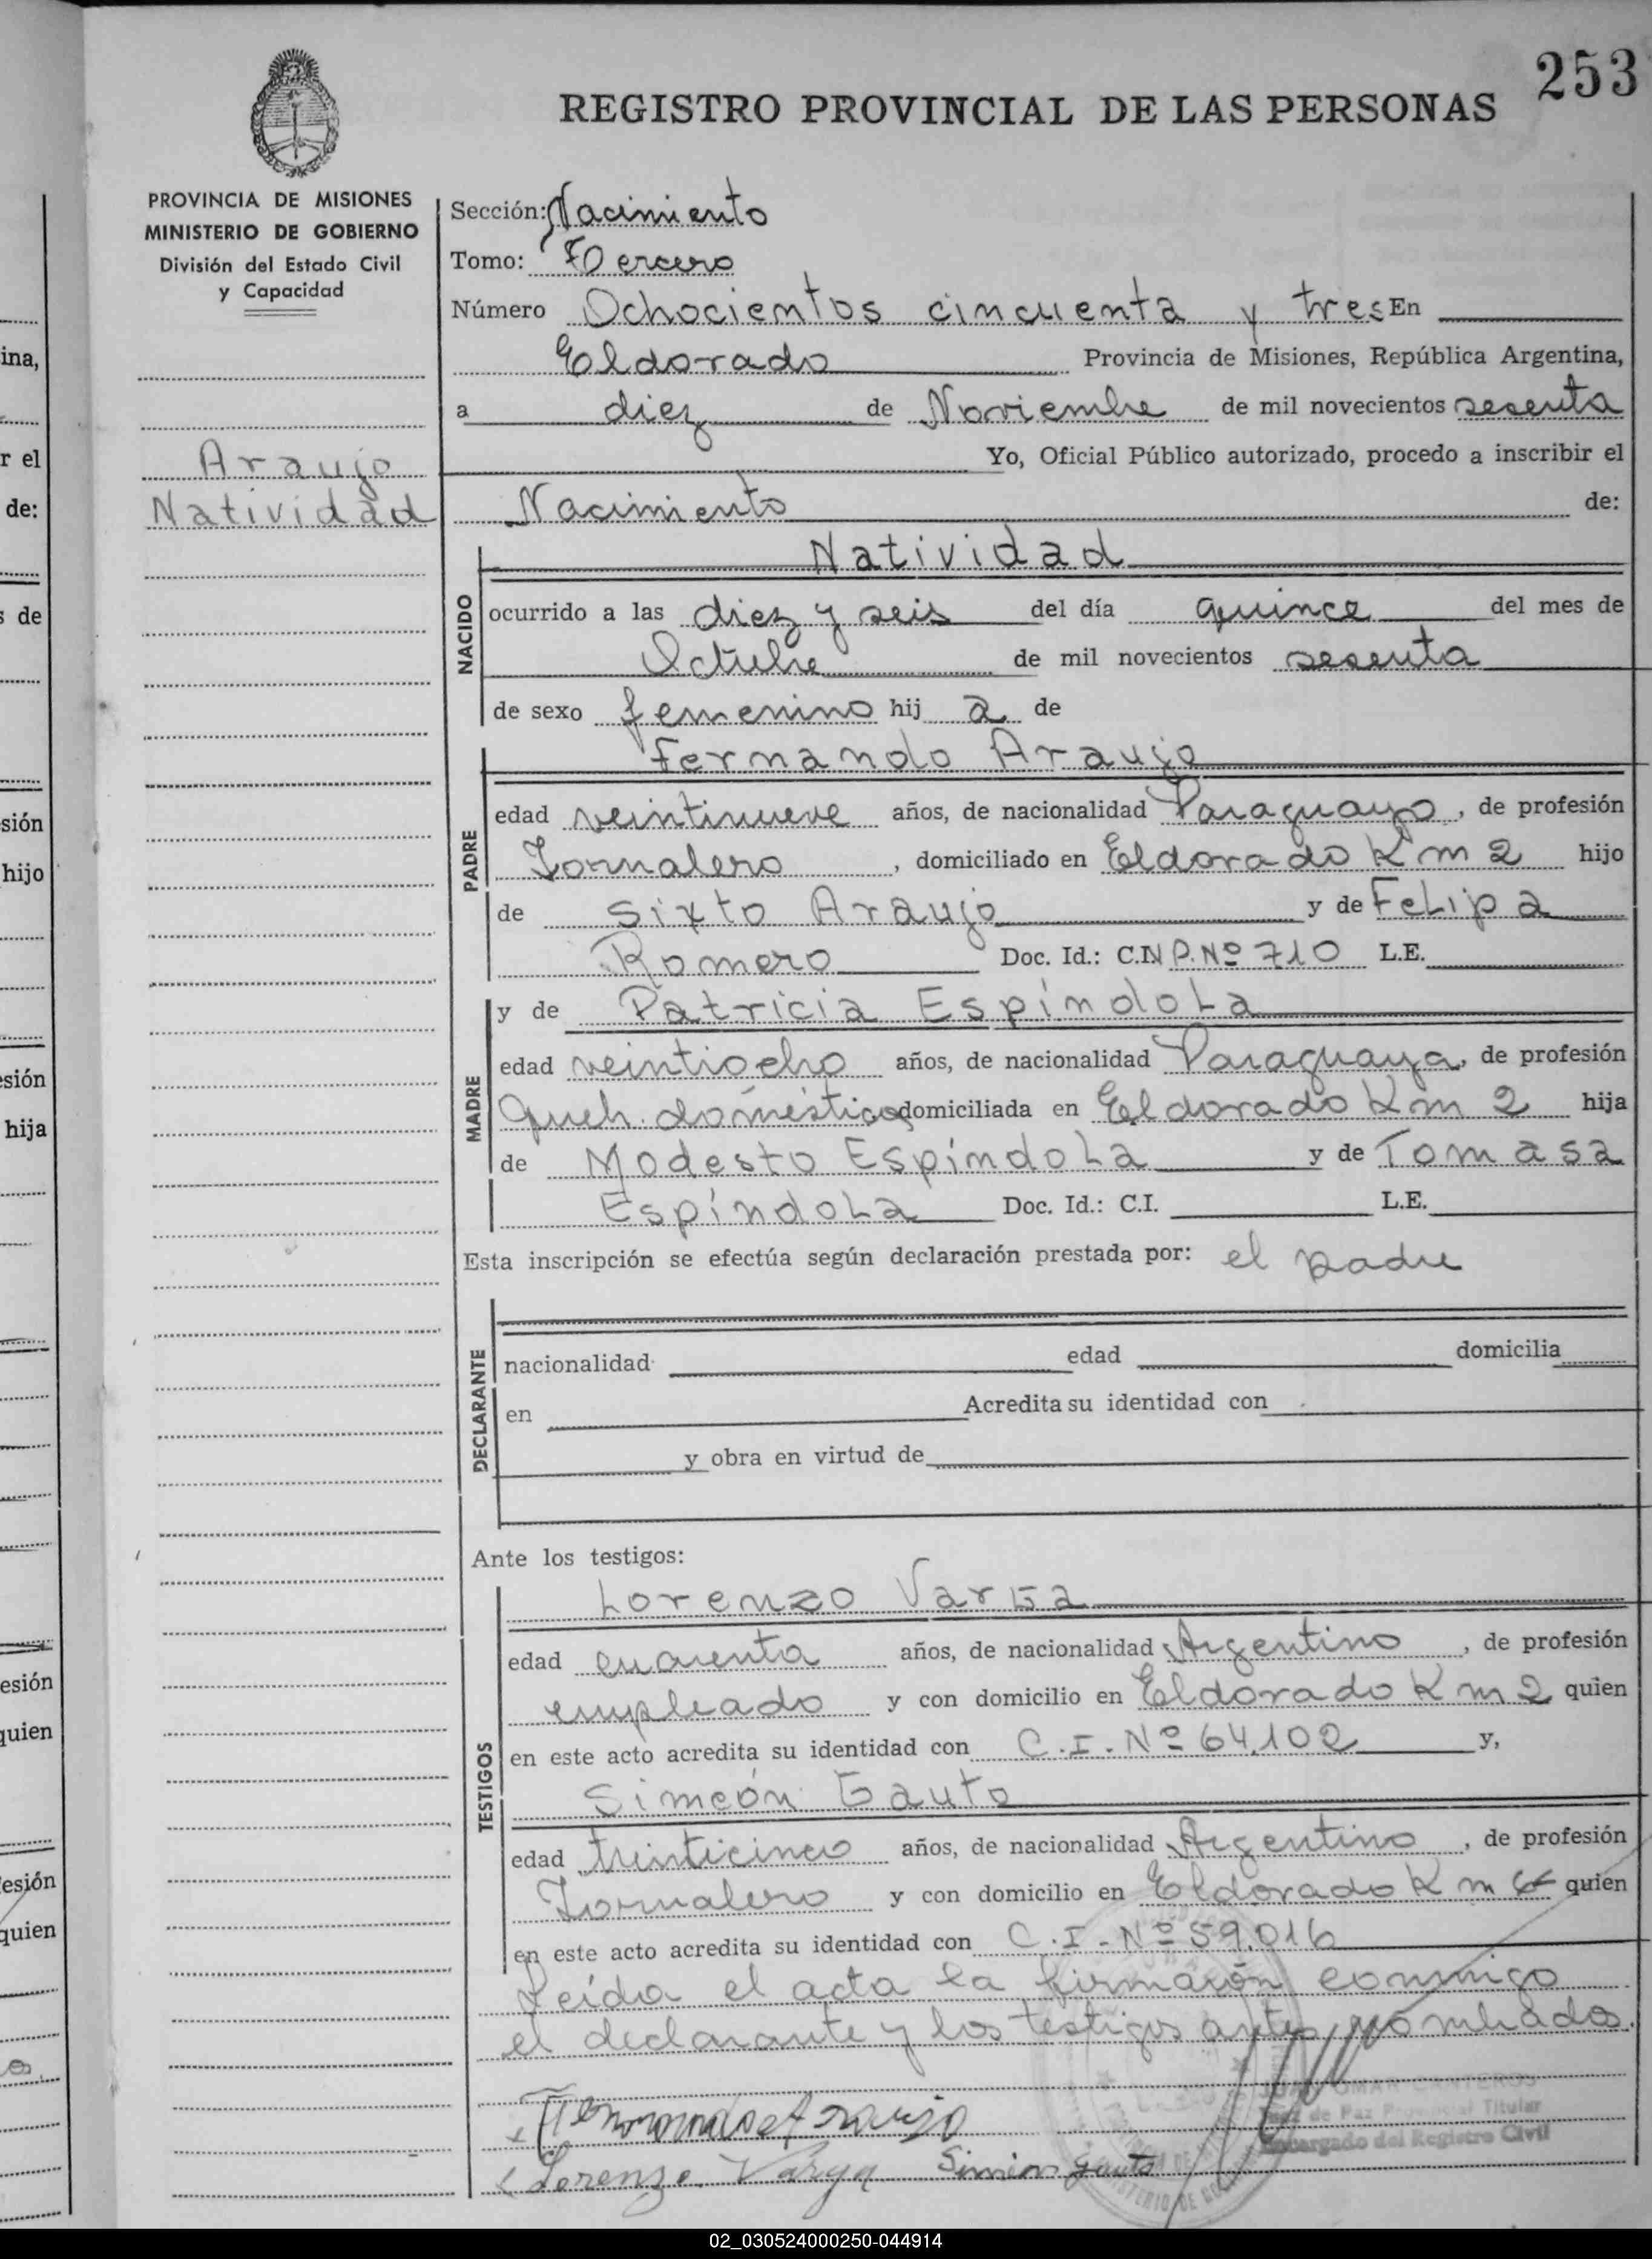 253
REGISTRO PROVINCIAL DE LAS PERSONAS
PROVINCIA DE MISIONES
MINISTERIO DE GOBIERNO
División del Estado Civil
y Capacidad
Araujo
Natividad
Sección: Nacimiento
Tomo: Tercero
Número Ochocientos cincuenta y tres En
Eldorado Provincia de Misiones, República Argentina,
a diez de Noviembre de mil novecientos sesenta
Yo, Oficial Público autorizado, procedo a inscribir el
Nacimiento de:
NACIDO
Natividad
ocurrido a las diez y seis del día quince del mes de
Octubre de mil novecientos sesenta
de sexo femenino hij a de
PADRE
Fernando Araujo
edad veintinueve años, de nacionalidad Paraguayo, de profesión
Jornalero, domiciliado en Eldorado Km 2 hijo
de Sixto Araujo y de Felipa
Romero Doc. Id.: C.N P. Nº 710 L.E.
MADRE
y de Patricia Espíndola
edad veintiocho años, de nacionalidad Paraguaya, de profesión
Queh. domésticos domiciliada en Eldorado Km 2 hija
de Modesto Espíndola y de Tomasa
Espíndola Doc. Id.: C.I. L.E.
Esta inscripción se efectúa según declaración prestada por: el padre
DECLARANTE
nacionalidad edad domicilia
en Acredita su identidad con
y obra en virtud de
Ante los testigos:
TESTIGOS
Lorenzo Varga
edad cuarenta años, de nacionalidad Argentino, de profesión
empleado y con domicilio en Eldorado Km 2 quien
en este acto acredita su identidad con C.I. Nº 64.102 y,
Simeón Gauto
edad treinticinco años, de nacionalidad Argentino, de profesión
Jornalero y con domicilio en Eldorado Km quien
en este acto acredita su identidad con C.I. Nº 59.016
Leída el acta la firmarón conmigo
el declarante y los testigos antes nombrados.
OMAR CANTEROS
Juez de Paz Provincial Titular
Encargado del Registro Civil
Fernando Araujo
Lorenzo Varga Simeon Gauto
ina,
r el
de:
s de
sión
hijo
esión
hija
esión
quien
esión
quien
02_030524000250-044914